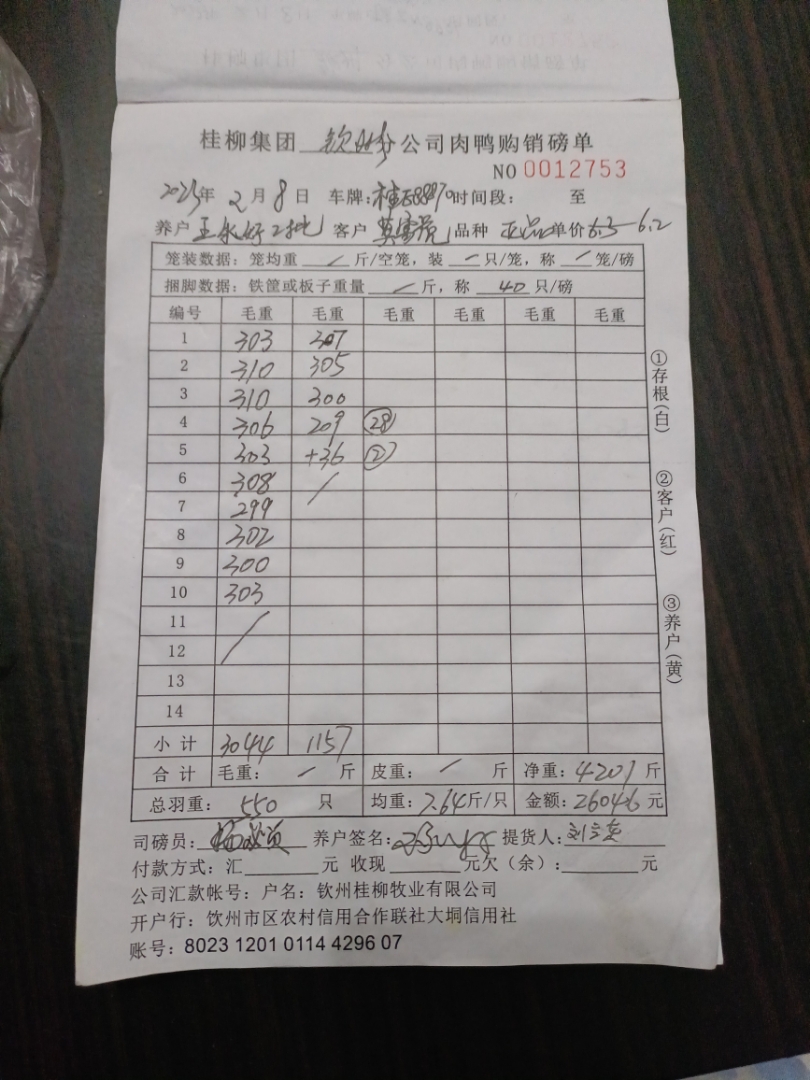 桂柳集团 钦州分 公司肉鸭购销磅单
NO 0012753
2023年 2月 8日 车牌: 时间段: 至
养户 客户 品种 正品 单价 6.3-6.2
笼装数据: 笼均重 / 斤/空笼, 装 / 只/笼, 称 / 笼/磅
捆脚数据: 铁筐或板子重量 / 斤, 称 40 只/磅
编号 毛重 毛重 毛重 毛重 毛重 毛重
1 303 307
2 310 305
3 310 300
4 306 209 28
5 303 +36 2
6 308 /
7 299
8 302
9 300
10 303
11 /
12
13
14
小计 3044 1157
合计 毛重: / 斤 皮重: / 斤 净重: 4201 斤
总羽重: 550 只 均重: 7.64斤/只 金额: 26046 元
司磅员: 养户签名: 提货人:
付款方式: 汇 元 收现 元欠(余): 元
公司汇款帐号: 户名: 钦州桂柳牧业有限公司
开户行: 饮州市区农村信用合作联社大垌信用社
账号: 8023 1201 0114 4296 07
①存根(白)
②客户(红)
③养户(黄)